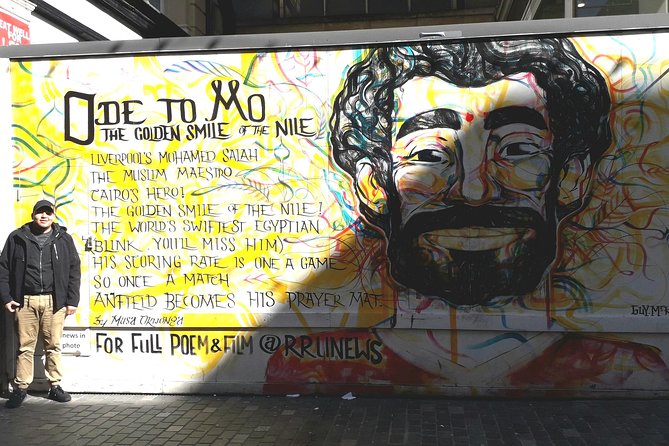 EAT WELL
FOR
ODE TO MO
THE GOLDEN SMILE OF THE NILE
LIVERPOOL'S MOHAMED SALAH
THE MUSLIM MAESTRO
CAIRO'S HERO!
THE GOLDEN SMILE OF THE NILE!
THE WORLD'S SWIFTEST EGYPTIAN
(BLINK, YOU'LL MISS HIM)
HIS SCORING RATE IS ONE A GAME
SO ONCE A MATCH
ANFIELD BECOMES HIS PRAYER MAT.
By Musa Okwonga
news in
photo
FOR FULL POEM & FILM @RRUNEWS
GUY.McK